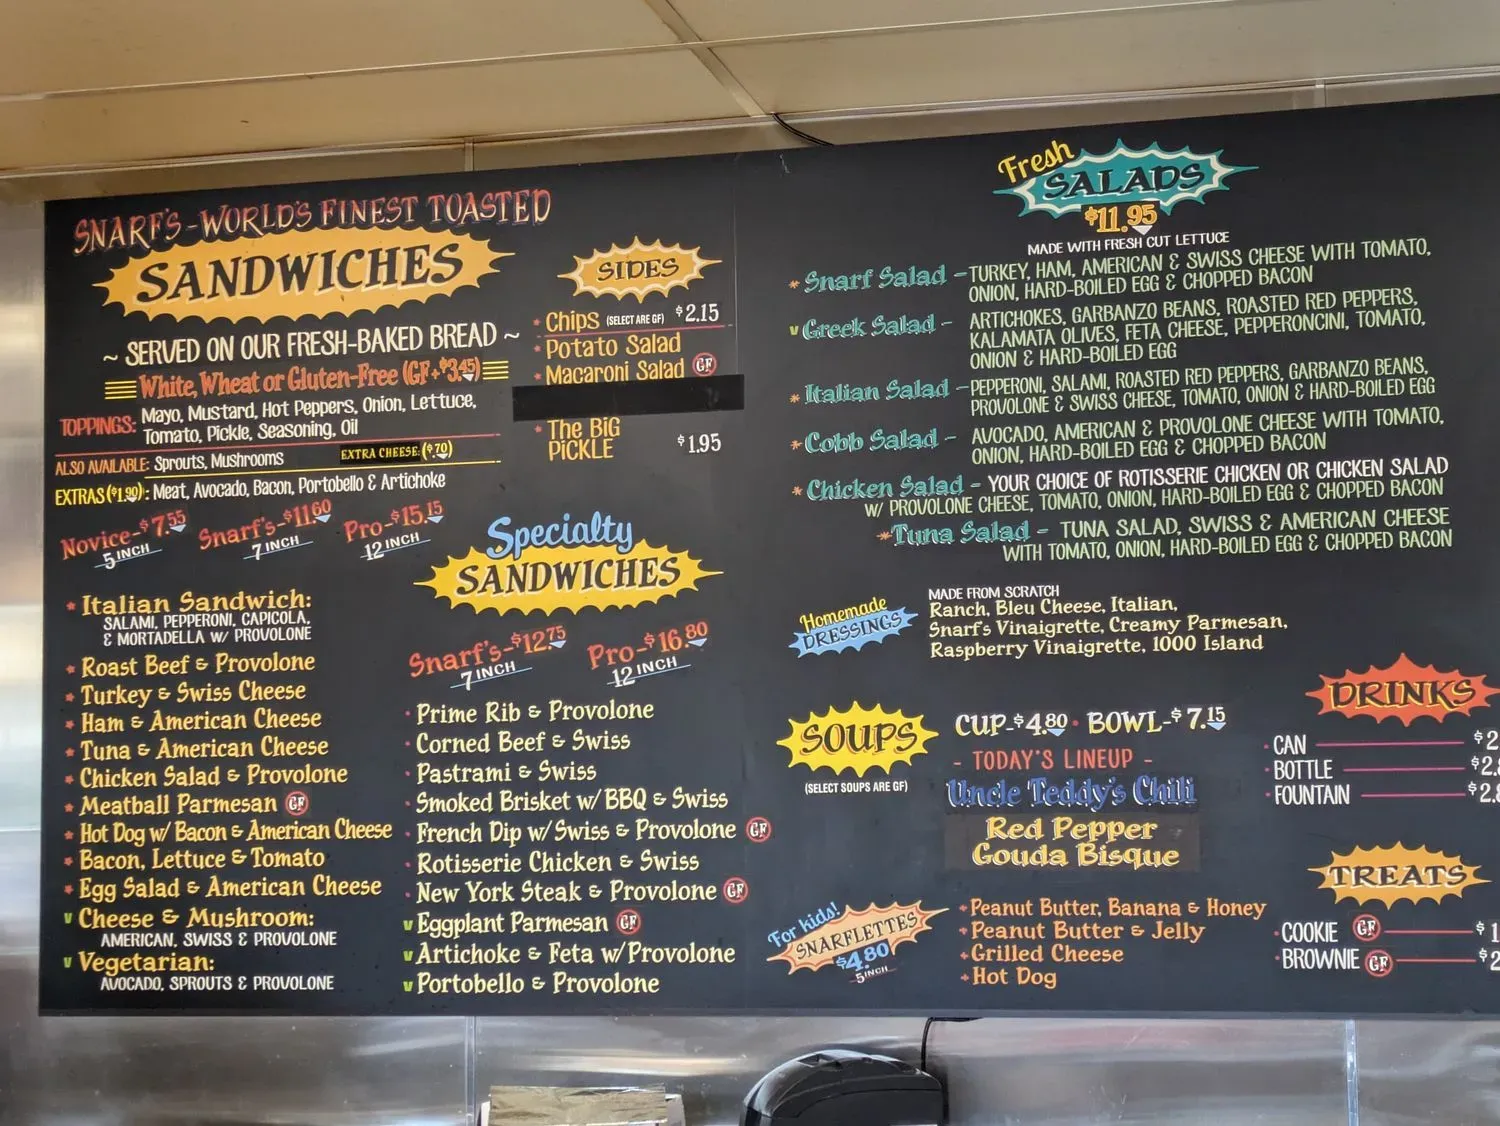 SNARF'S - WORLD'S FINEST TOASTED
SANDWICHES
~ SERVED ON OUR FRESH-BAKED BREAD ~
White, Wheat or Gluten-Free (GF +$3.45)
TOPPINGS: Mayo, Mustard, Hot Peppers, Onion, Lettuce,
Tomato, Pickle, Seasoning, Oil
ALSO AVAILABLE: Sprouts, Mushrooms EXTRA CHEESE: ($.70)
EXTRAS ($1.90): Meat, Avocado, Bacon, Portobello & Artichoke
Novice-$7.55
5 INCH
Snarf's-$11.60
7 INCH
Pro-$15.15
12 INCH
Italian Sandwich:
SALAMI, PEPPERONI, CAPICOLA,
& MORTADELLA W/ PROVOLONE
Roast Beef & Provolone
Turkey & Swiss Cheese
Ham & American Cheese
Tuna & American Cheese
Chicken Salad & Provolone
Meatball Parmesan GF
Hot Dog w/ Bacon & American Cheese
Bacon, Lettuce & Tomato
Egg Salad & American Cheese
V Cheese & Mushroom:
AMERICAN, SWISS & PROVOLONE
V Vegetarian:
AVOCADO, SPROUTS & PROVOLONE
SIDES
Chips (SELECT ARE GF) $2.15
Potato Salad
Macaroni Salad GF
The BIG
PICKLE $1.95
Specialty
SANDWICHES
Snarf's-$12.75
7 INCH
Pro-$16.80
12 INCH
Prime Rib & Provolone
Corned Beef & Swiss
Pastrami & Swiss
Smoked Brisket w/ BBQ & Swiss
French Dip w/ Swiss & Provolone GF
Rotisserie Chicken & Swiss
New York Steak & Provolone GF
V Eggplant Parmesan GF
V Artichoke & Feta w/ Provolone
V Portobello & Provolone
Fresh
SALADS
$11.95
MADE WITH FRESH CUT LETTUCE
* Snarf Salad - TURKEY, HAM, AMERICAN & SWISS CHEESE WITH TOMATO,
ONION, HARD-BOILED EGG & CHOPPED BACON
V Greek Salad - ARTICHOKES, GARBANZO BEANS, ROASTED RED PEPPERS,
KALAMATA OLIVES, FETA CHEESE, PEPPERONCINI, TOMATO,
ONION & HARD-BOILED EGG
* Italian Salad - PEPPERONI, SALAMI, ROASTED RED PEPPERS, GARBANZO BEANS,
PROVOLONE & SWISS CHEESE, TOMATO, ONION & HARD-BOILED EGG
* Cobb Salad - AVOCADO, AMERICAN & PROVOLONE CHEESE WITH TOMATO,
ONION, HARD-BOILED EGG & CHOPPED BACON
* Chicken Salad - YOUR CHOICE OF ROTISSERIE CHICKEN OR CHICKEN SALAD
W/ PROVOLONE CHEESE, TOMATO, ONION, HARD-BOILED EGG & CHOPPED BACON
* Tuna Salad - TUNA SALAD, SWISS & AMERICAN CHEESE
WITH TOMATO, ONION, HARD-BOILED EGG & CHOPPED BACON
Homemade
DRESSINGS
MADE FROM SCRATCH
Ranch, Bleu Cheese, Italian,
Snarf's Vinaigrette, Creamy Parmesan,
Raspberry Vinaigrette, 1000 Island
SOUPS
(SELECT SOUPS ARE GF)
CUP-$4.80 · BOWL-$7.15
- TODAY'S LINEUP -
Uncle Teddy's Chili
Red Pepper
Gouda Bisque
For kids!
SNARFLETTES
$4.80
5 INCH
Peanut Butter, Banana & Honey
Peanut Butter & Jelly
Grilled Cheese
Hot Dog
DRINKS
CAN $2
BOTTLE $2.
FOUNTAIN $2.
TREATS
COOKIE GF $1
BROWNIE GF $2